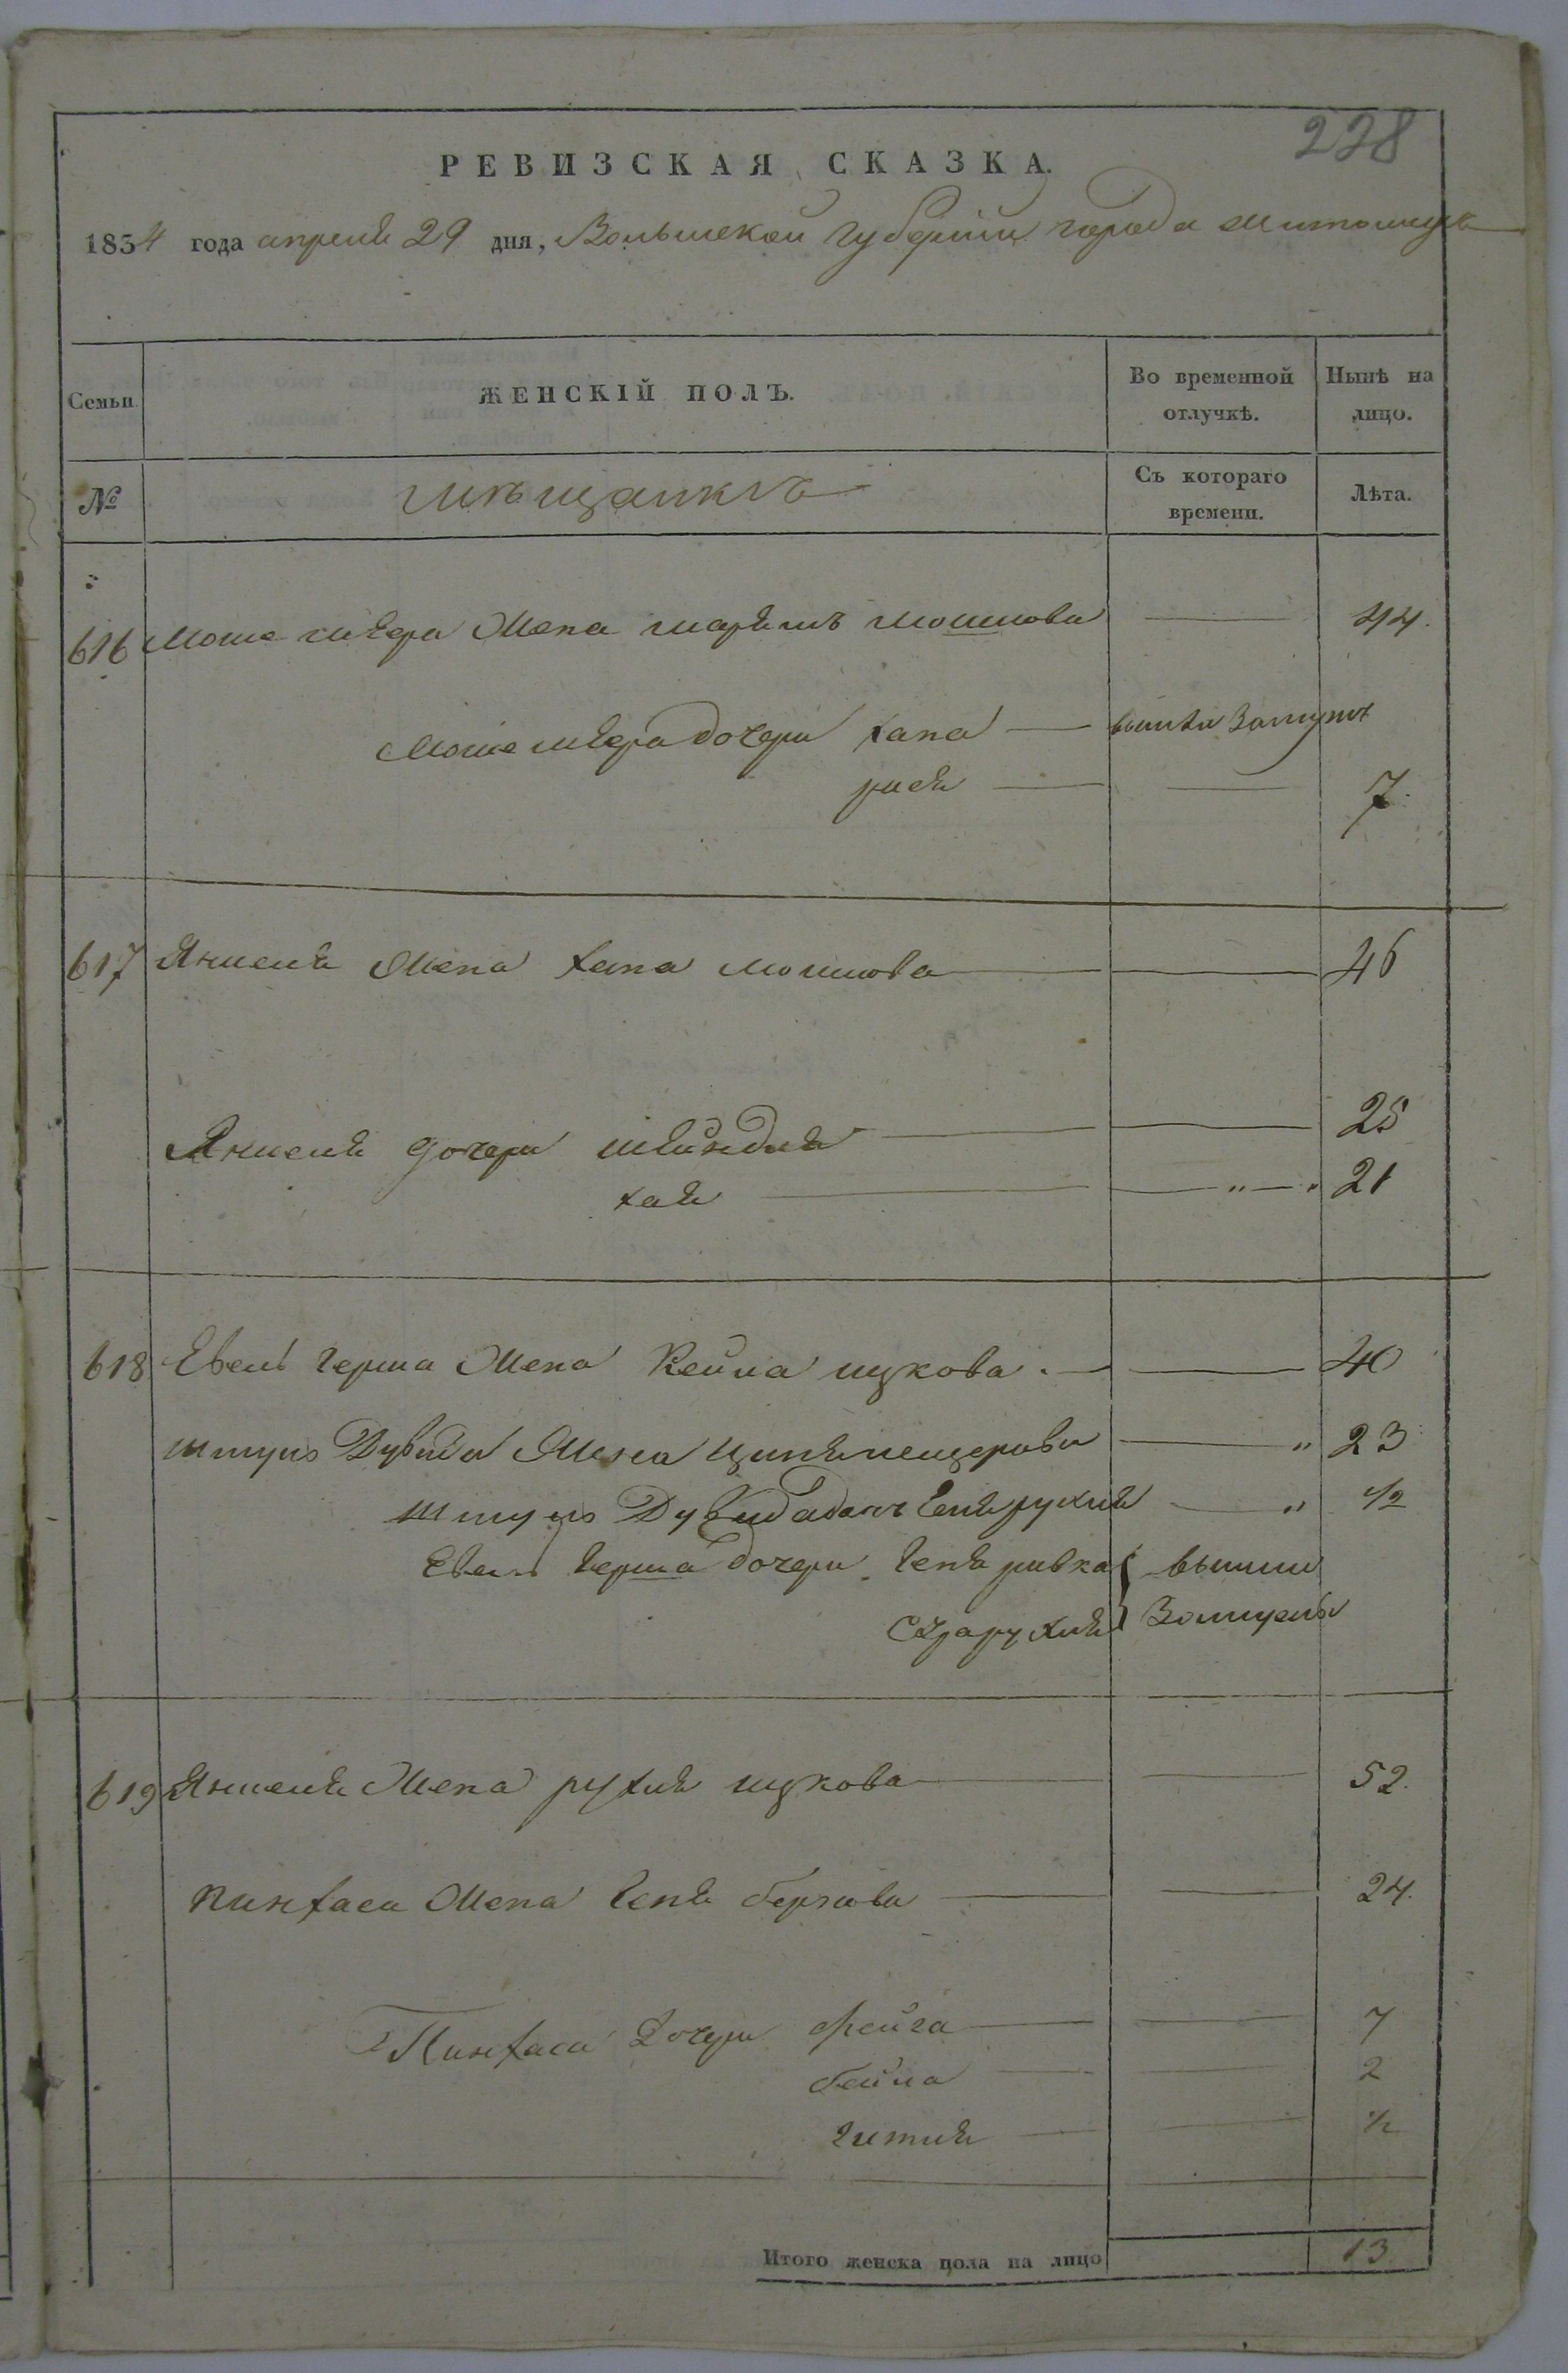 228
РЕВИЗСКАЯ СКАЗКА.
1834 года апреля 29 дня, Волынской губернии города Житомира
Семьи. ЖЕНСКІЙ ПОЛЪ. Во временной отлучкѣ. Нынѣ на лицо.
№ мѣщанкъ Съ котораго времени. Лѣта.
616 Мошемеера Жена маріямъ мошкова — 44.
Мошемеера дочери хана — вышла Замуж
рися — — 7.
617 Яншеля Жена хана мошкова — — 46
Яншеля дочери шейндля — — 25
хая — — „ — „ 21
618 Евель герша Жена Кейла ицкова. — — 40
Дувида Жена — „ 23
Дувида дочь Геня рухля — „ 1/2
Евель герша дочери Геня ривка вышли
Сурарухля Замужъ
619 Яншеля Жена рухля ицкова — — 52.
Пинхаса Жена Геня беркова — — 24.
Пинхаса Дочери фейга — — 7
бейла — — 2
гитля — — 1/2
Итого женска пола на лицо 13